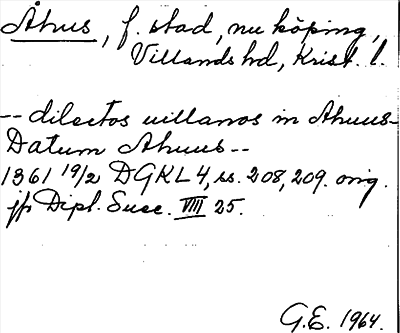 Åhus, f. stad, nu köping,
Villands hd, Krist. l.
-- dilectos uillanos in Ahuus-
Datum Ahuus --
1361 19/2 DGKL 4, ss. 208, 209. orig.
jfr Dipl. Suec. VIII 25.
G.E. 1964.